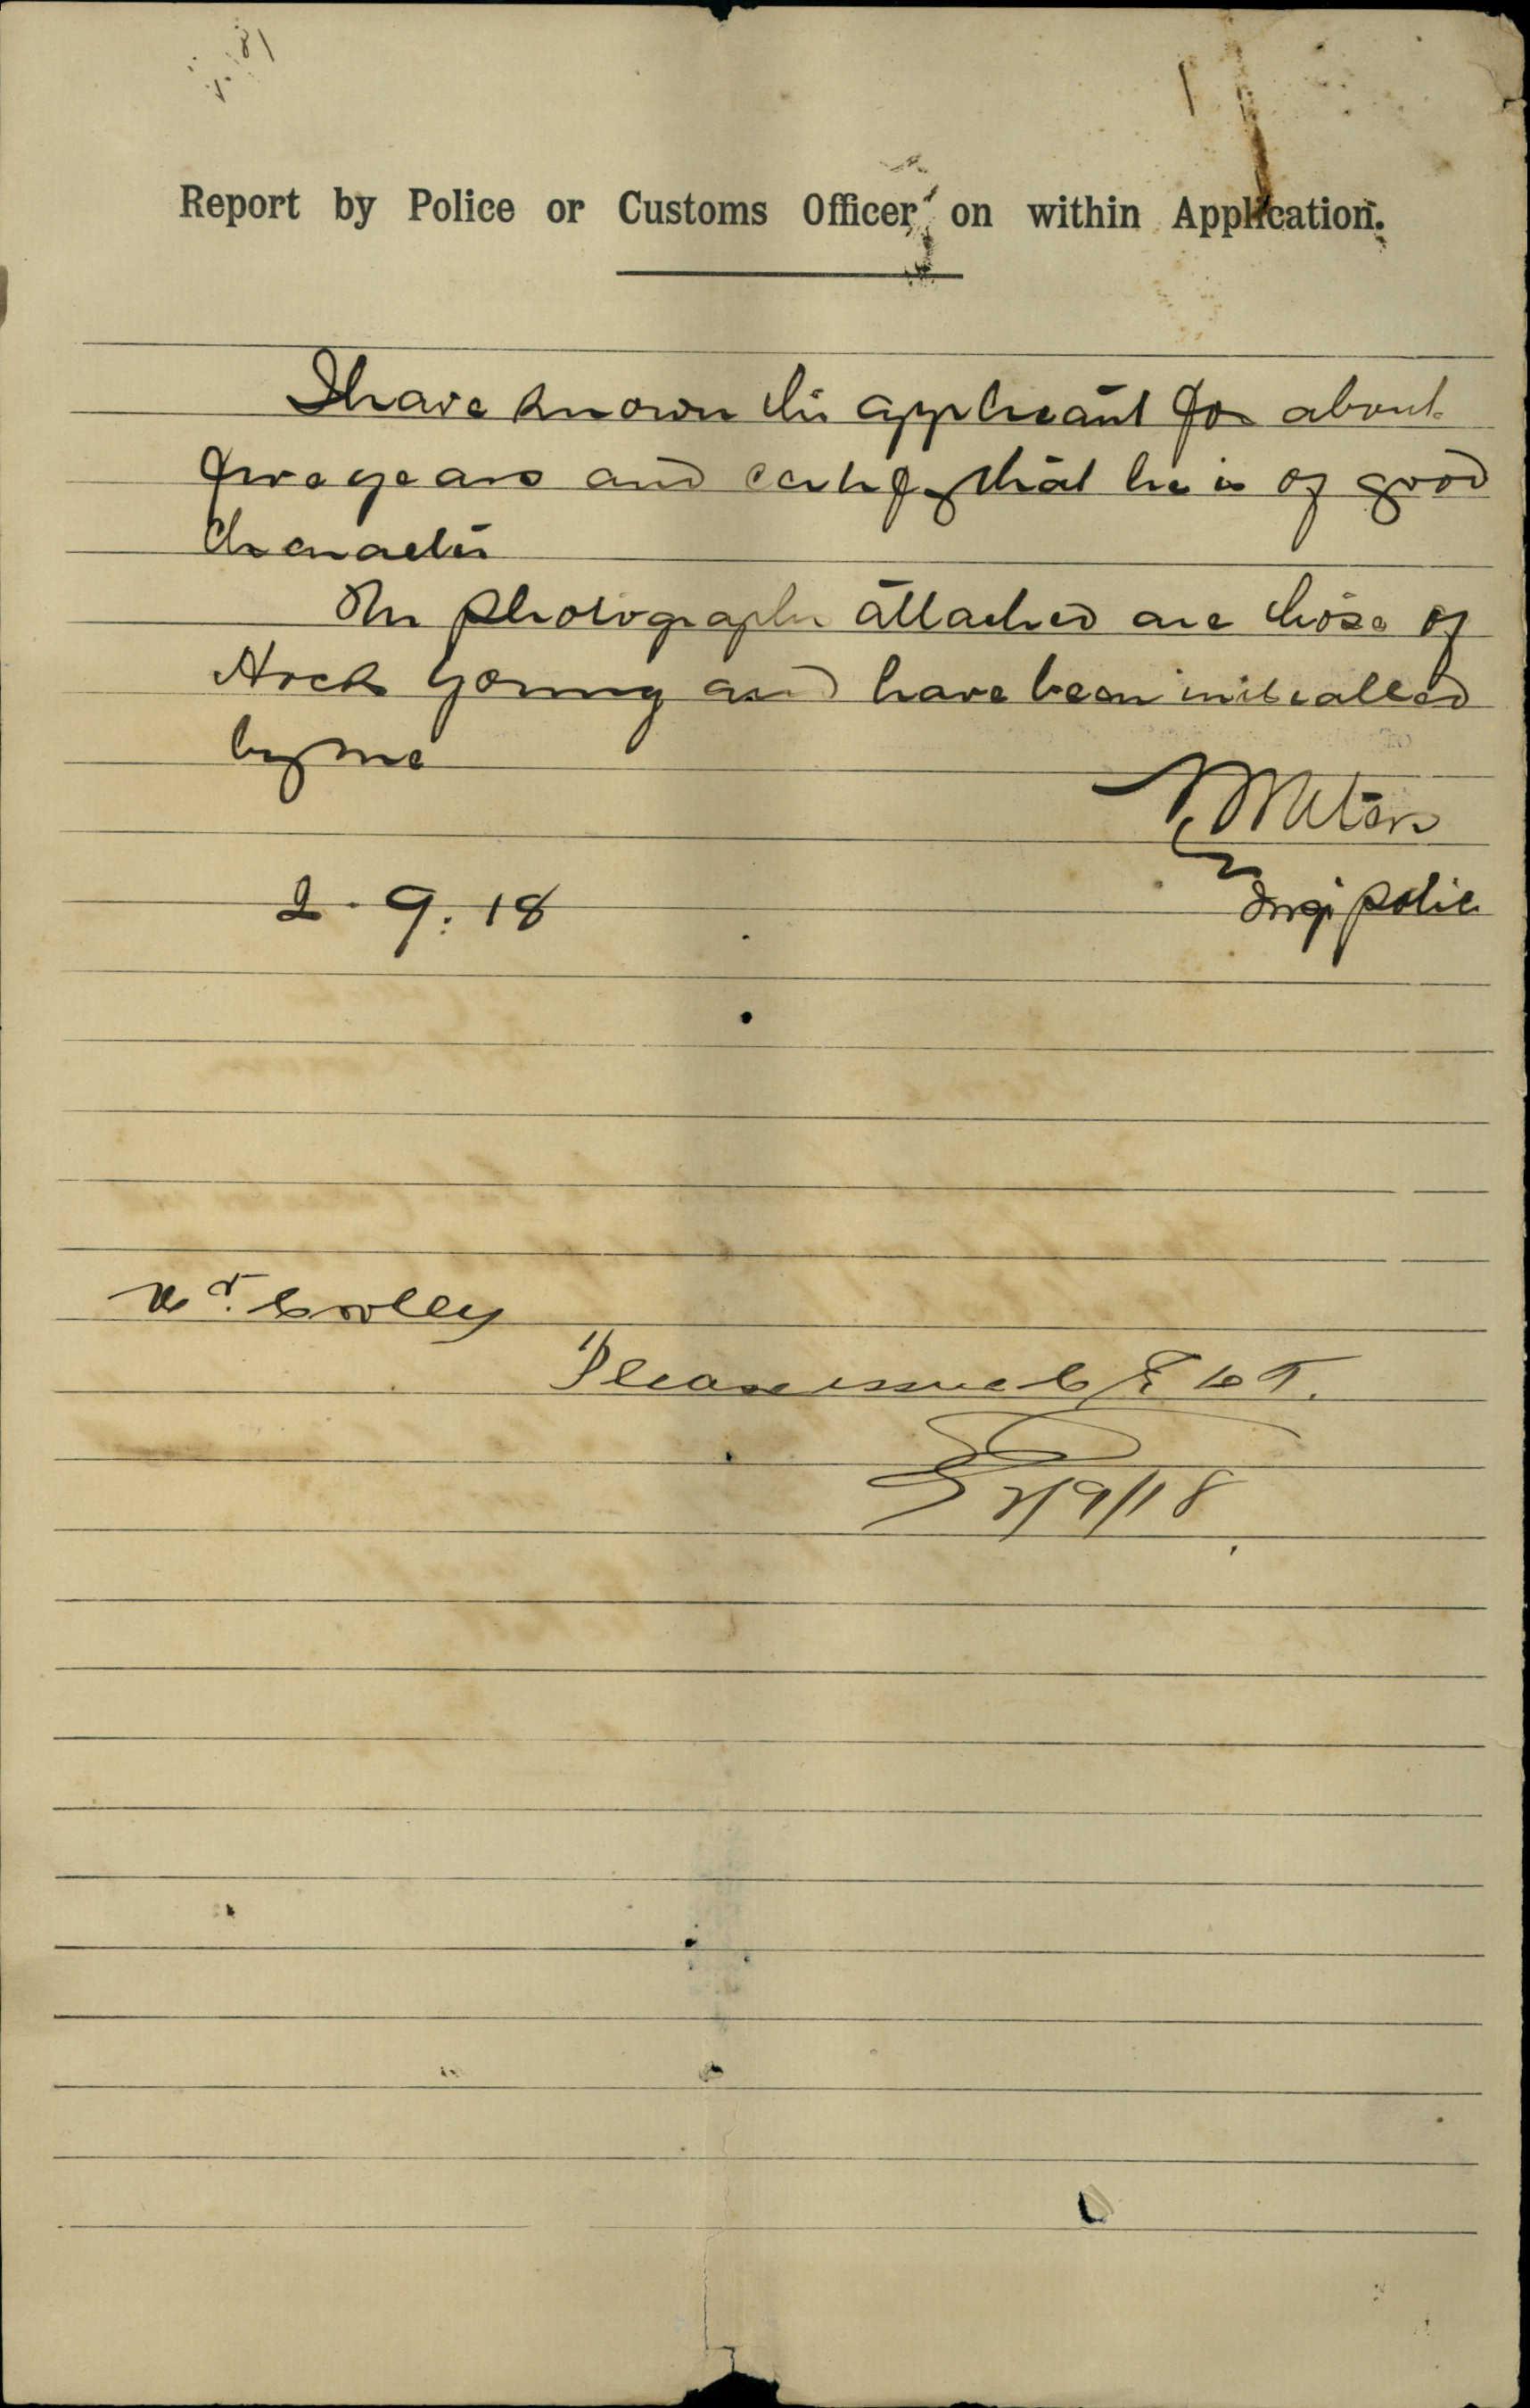 Report by Police or Customs Officer on within Application.
I have known this applicant for about
five years and certify that he is of good
character
The photographs attached are those of
Hock Young and have been initialled
by me
Waters
Insp Police
2.9.18
Mr. Coolley
Please issue C E D T.
2/9/18